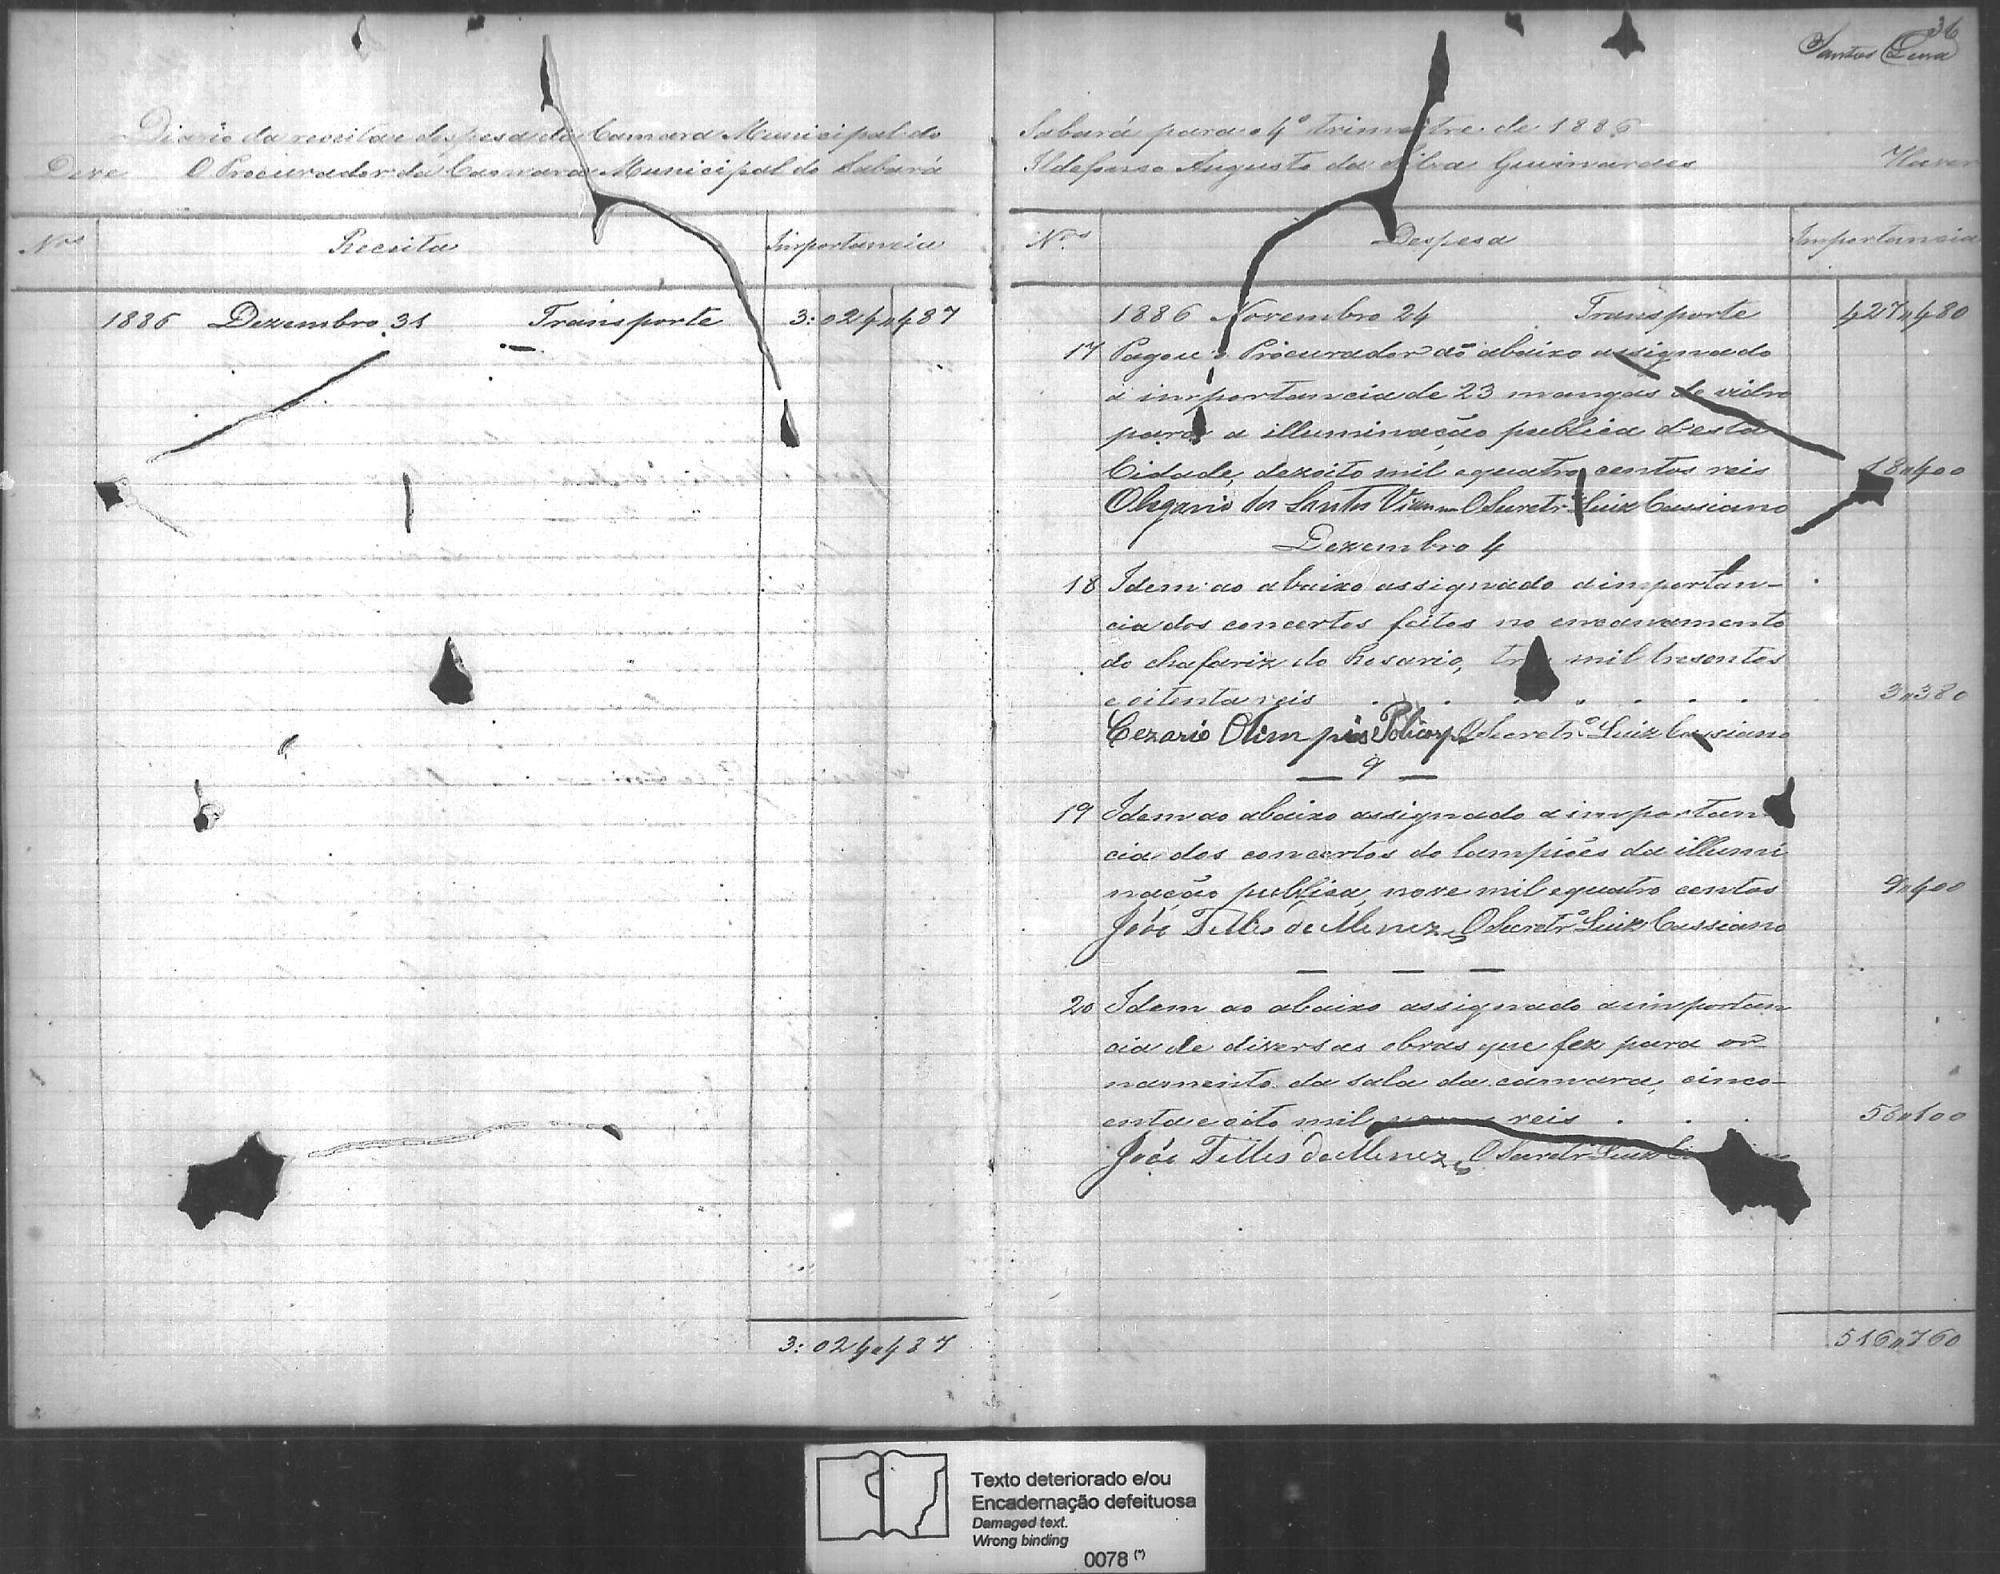 36
Santos Lima
Diario da receita e despesa da Camara Municipal do
Deve O Procurador da Camara Municipal do Sabará
Nros Receita Importancia
1886 Dezembro 31 Transporte 3:024"487
3:024"487
Sabará para o 4º trimestre de 1886
Ildefonso Augusto da Silva Guimarães Haver
Nros Despesa Importancia
1886 Novembro 24 Transporte 427"480
17 Pagou o Procurador ao abaixo assignado
a importancia de 23 mangas de vidro
para a illuminação publica d'esta
Cidade, dezoito mil e quatro centos reis 18"400
Olegario dos Santos Vianna O Secretr. Luiz Cassiano
Dezembro 4
18 Idem ao abaixo assignado a importan-
cia dos concertos feitos no encanamento
do chafariz do Rosario, tres mil tresentos
e oitenta reis 3"380
Cezario Olimpio O Secretrº Luiz Cassiano
— 9 —
19 Idem ao abaixo assignado a importan
cia dos concertos do lampiões da illumi
nação publica, nove mil e quatro centos 9"400
João Telles de Menezes O Secretrº Luiz Cassiano
— — —
20 Idem ao abaixo assignado a importan
cia de diversas obras que fez para or-
namento da sala da camara, cinco-
enta e oito mil reis 58"100
João Telles de Menezes O Secretr Luiz
516"760
Texto deteriorado e/ou
Encadernação defeituosa
Damaged text.
Wrong binding
0078 (*)